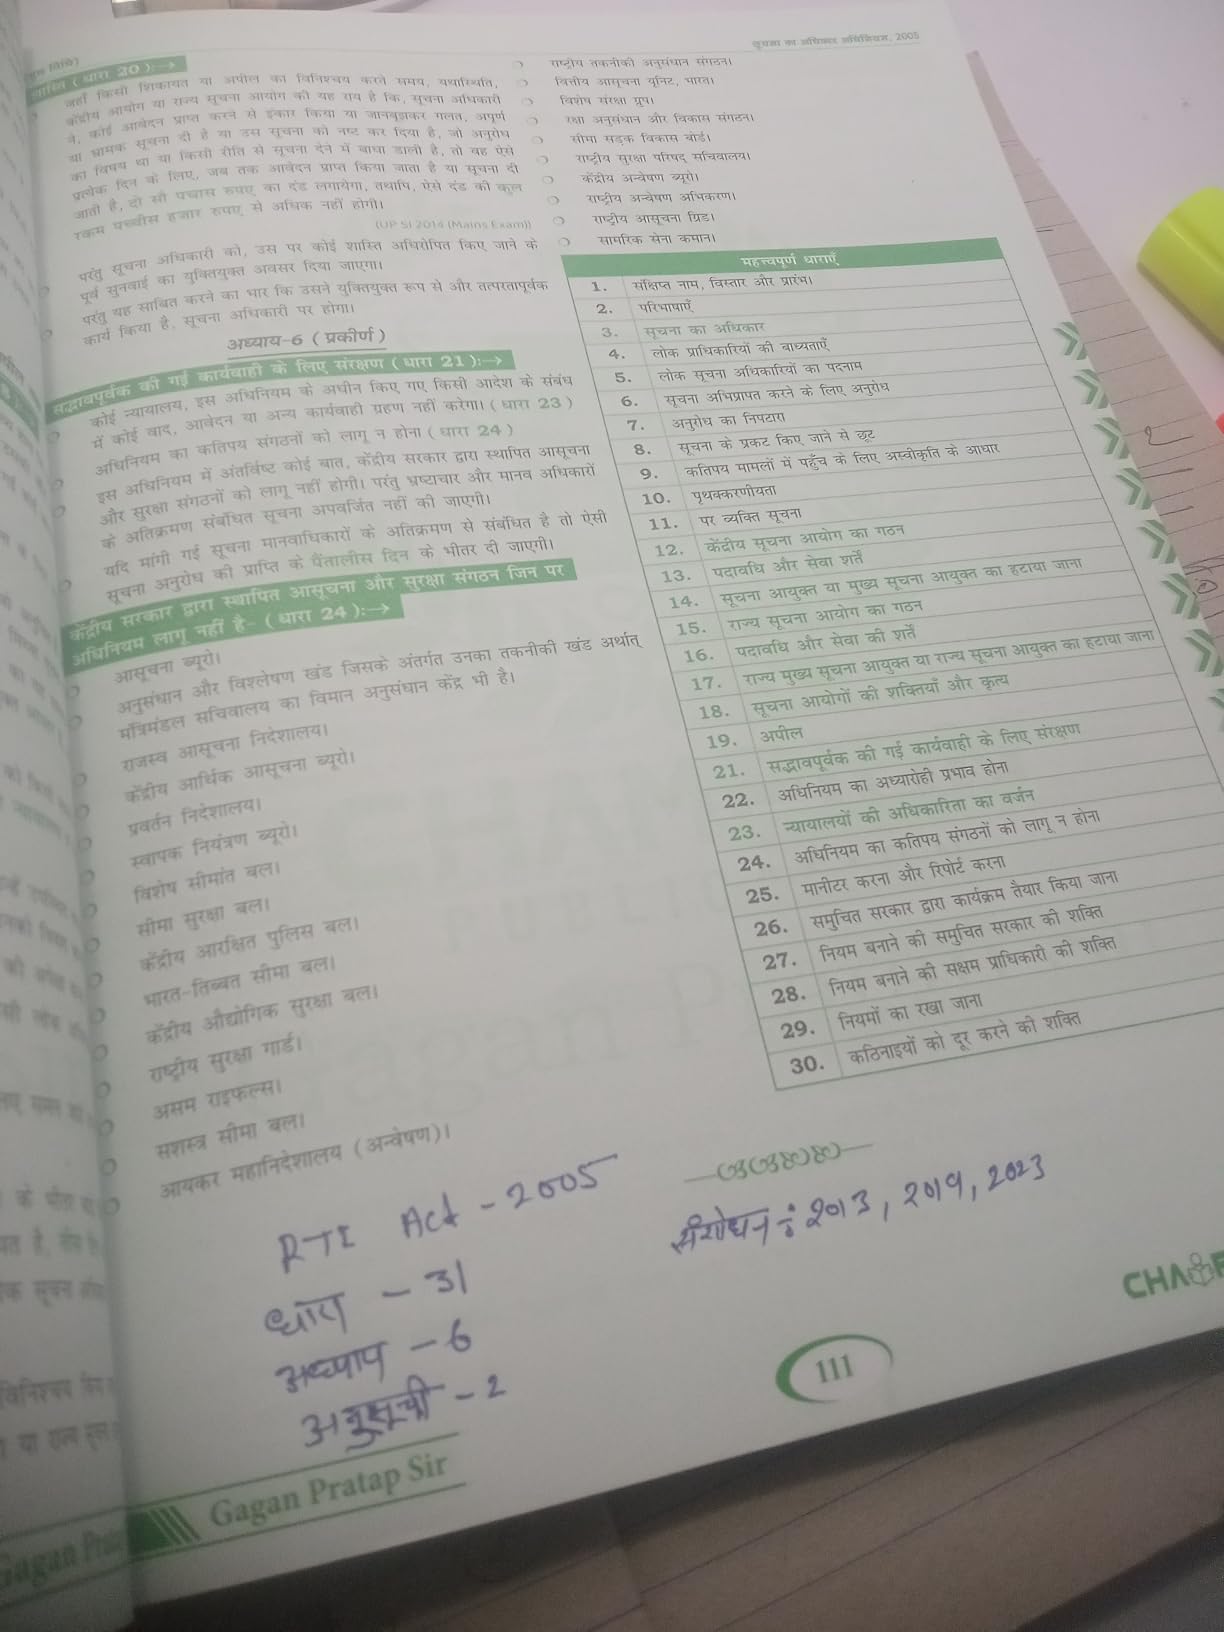 सूचना का अधिकार अधिनियम, 2005
शास्ति (धारा 20):→
जहाँ किसी शिकायत या अपील का विनिश्चय करते समय, यथास्थिति,
केंद्रीय आयोग या राज्य सूचना आयोग की यह राय है कि, सूचना अधिकारी
ने, कोई आवेदन प्राप्त करने से इंकार किया या जानबूझकर गलत, अपूर्ण
या भ्रामक सूचना दी है या उस सूचना को नष्ट कर दिया है, जो अनुरोध
का विषय था या किसी रीति से सूचना देने में बाधा डाली है, तो वह ऐसे
प्रत्येक दिन के लिए, जब तक आवेदन प्राप्त किया जाता है या सूचना दी
जाती है, दो सौ पचास रुपए का दंड लगायेगा, तथापि, ऐसे दंड की कुल
रकम पच्चीस हजार रुपए से अधिक नहीं होगी।
(UP SI 2014 (Mains Exam))
परंतु सूचना अधिकारी को, उस पर कोई शास्ति अधिरोपित किए जाने के
पूर्व सुनवाई का युक्तियुक्त अवसर दिया जाएगा।
परंतु यह साबित करने का भार कि उसने युक्तियुक्त रूप से और तत्परतापूर्वक
कार्य किया है, सूचना अधिकारी पर होगा।
अध्याय-6 (प्रकीर्ण)
सद्भावपूर्वक की गई कार्यवाही के लिए संरक्षण (धारा 21):→
कोई न्यायालय, इस अधिनियम के अधीन किए गए किसी आदेश के संबंध
में कोई वाद, आवेदन या अन्य कार्यवाही ग्रहण नहीं करेगा। (धारा 23)
अधिनियम का कतिपय संगठनों को लागू न होना (धारा 24)
इस अधिनियम में अंतर्विष्ट कोई बात, केंद्रीय सरकार द्वारा स्थापित आसूचना
और सुरक्षा संगठनों को लागू नहीं होगी। परंतु भ्रष्टाचार और मानव अधिकारों
के अतिक्रमण संबंधित सूचना अपवर्जित नहीं की जाएगी।
यदि मांगी गई सूचना मानवाधिकारों के अतिक्रमण से संबंधित है तो ऐसी
सूचना अनुरोध की प्राप्ति के पैंतालीस दिन के भीतर दी जाएगी।
केंद्रीय सरकार द्वारा स्थापित आसूचना और सुरक्षा संगठन जिन पर
अधिनियम लागू नहीं है- (धारा 24):→
आसूचना ब्यूरो।
अनुसंधान और विश्लेषण खंड जिसके अंतर्गत उनका तकनीकी खंड अर्थात्
मंत्रिमंडल सचिवालय का विमान अनुसंधान केंद्र भी है।
राजस्व आसूचना निदेशालय।
केंद्रीय आर्थिक आसूचना ब्यूरो।
प्रवर्तन निदेशालय।
स्वापक नियंत्रण ब्यूरो।
विशेष सीमांत बल।
सीमा सुरक्षा बल।
केंद्रीय आरक्षित पुलिस बल।
भारत-तिब्बत सीमा बल।
केंद्रीय औद्योगिक सुरक्षा बल।
राष्ट्रीय सुरक्षा गार्ड।
असम राइफल्स।
सशस्त्र सीमा बल।
आयकर महानिदेशालय (अन्वेषण)।
राष्ट्रीय तकनीकी अनुसंधान संगठन।
वित्तीय आसूचना यूनिट, भारत।
विशेष संरक्षा ग्रुप।
रक्षा अनुसंधान और विकास संगठन।
सीमा सड़क विकास बोर्ड।
राष्ट्रीय सुरक्षा परिषद् सचिवालय।
केंद्रीय अन्वेषण ब्यूरो।
राष्ट्रीय अन्वेषण अभिकरण।
राष्ट्रीय आसूचना ग्रिड।
सामरिक सेना कमान।
महत्त्वपूर्ण धाराएँ
1. संक्षिप्त नाम, विस्तार और प्रारंभ।
2. परिभाषाएँ
3. सूचना का अधिकार
4. लोक प्राधिकारियों की बाध्यताएँ
5. लोक सूचना अधिकारियों का पदनाम
6. सूचना अभिप्राप्त करने के लिए अनुरोध
7. अनुरोध का निपटारा
8. सूचना के प्रकट किए जाने से छूट
9. कतिपय मामलों में पहुँच के लिए अस्वीकृति के आधार
10. पृथक्करणीयता
11. पर व्यक्ति सूचना
12. केंद्रीय सूचना आयोग का गठन
13. पदावधि और सेवा शर्तें
14. सूचना आयुक्त या मुख्य सूचना आयुक्त का हटाया जाना
15. राज्य सूचना आयोग का गठन
16. पदावधि और सेवा की शर्तें
17. राज्य मुख्य सूचना आयुक्त या राज्य सूचना आयुक्त का हटाया जाना
18. सूचना आयोगों की शक्तियाँ और कृत्य
19. अपील
21. सद्भावपूर्वक की गई कार्यवाही के लिए संरक्षण
22. अधिनियम का अध्यारोही प्रभाव होना
23. न्यायालयों की अधिकारिता का वर्जन
24. अधिनियम का कतिपय संगठनों को लागू न होना
25. मानीटर करना और रिपोर्ट करना
26. समुचित सरकार द्वारा कार्यक्रम तैयार किया जाना
27. नियम बनाने की समुचित सरकार की शक्ति
28. नियम बनाने की सक्षम प्राधिकारी की शक्ति
29. नियमों का रखा जाना
30. कठिनाइयों को दूर करने की शक्ति
RTI Act - 2005
धारा - 31
अध्याय - 6
अनुसूची - 2
संशोधन : 2013, 2019, 2023
111
Gagan Pratap Sir